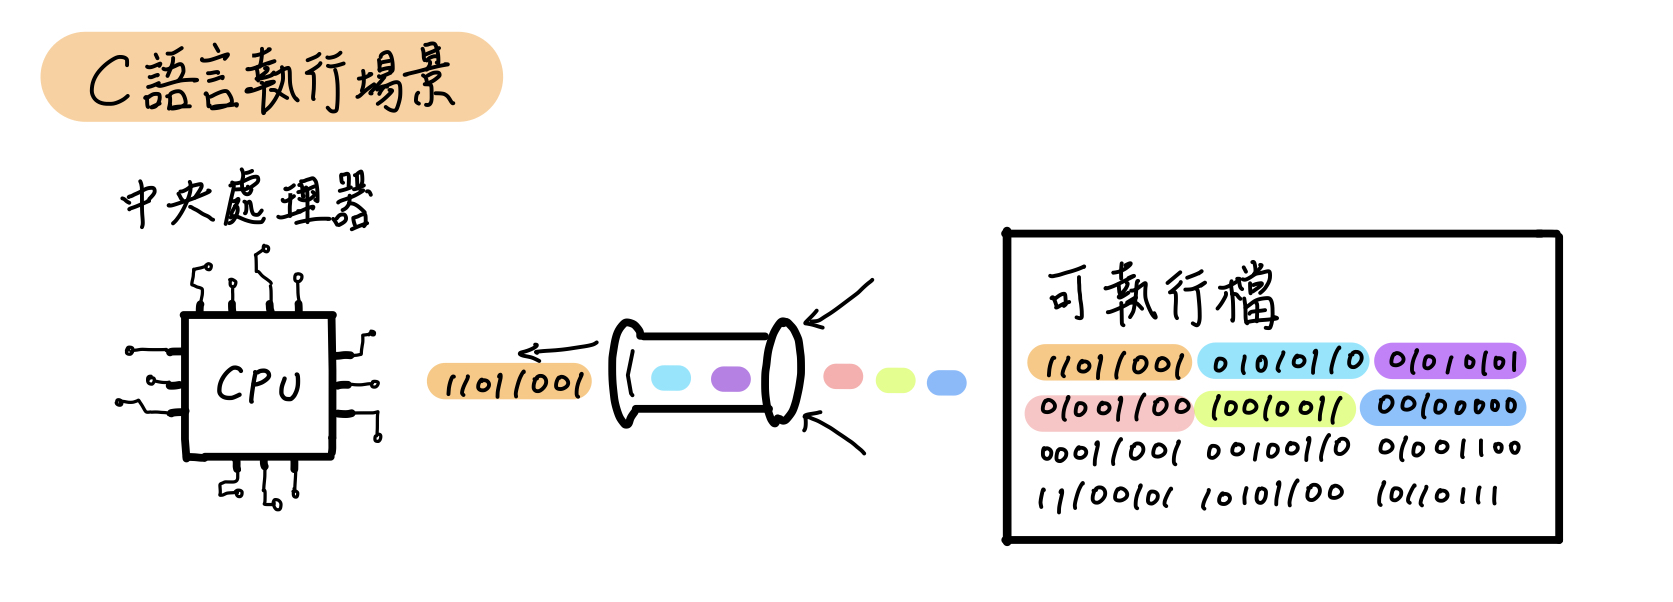 C語言執行場景
中央處理器
CPU
11011001
可執行檔
11011001 01010110 01010101
01001100 10010011 00100000
00011001 00100110 01001100
11100101 10101100 10110111